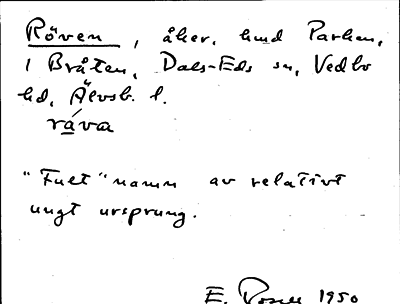 Röven, åker, hmd Parken,
1 Bråten, Dals-Eds sn, Vedbo
hd, Älvsb. l.
râva
"Fult" namn av relativt
ungt ursprung.
E. 1950